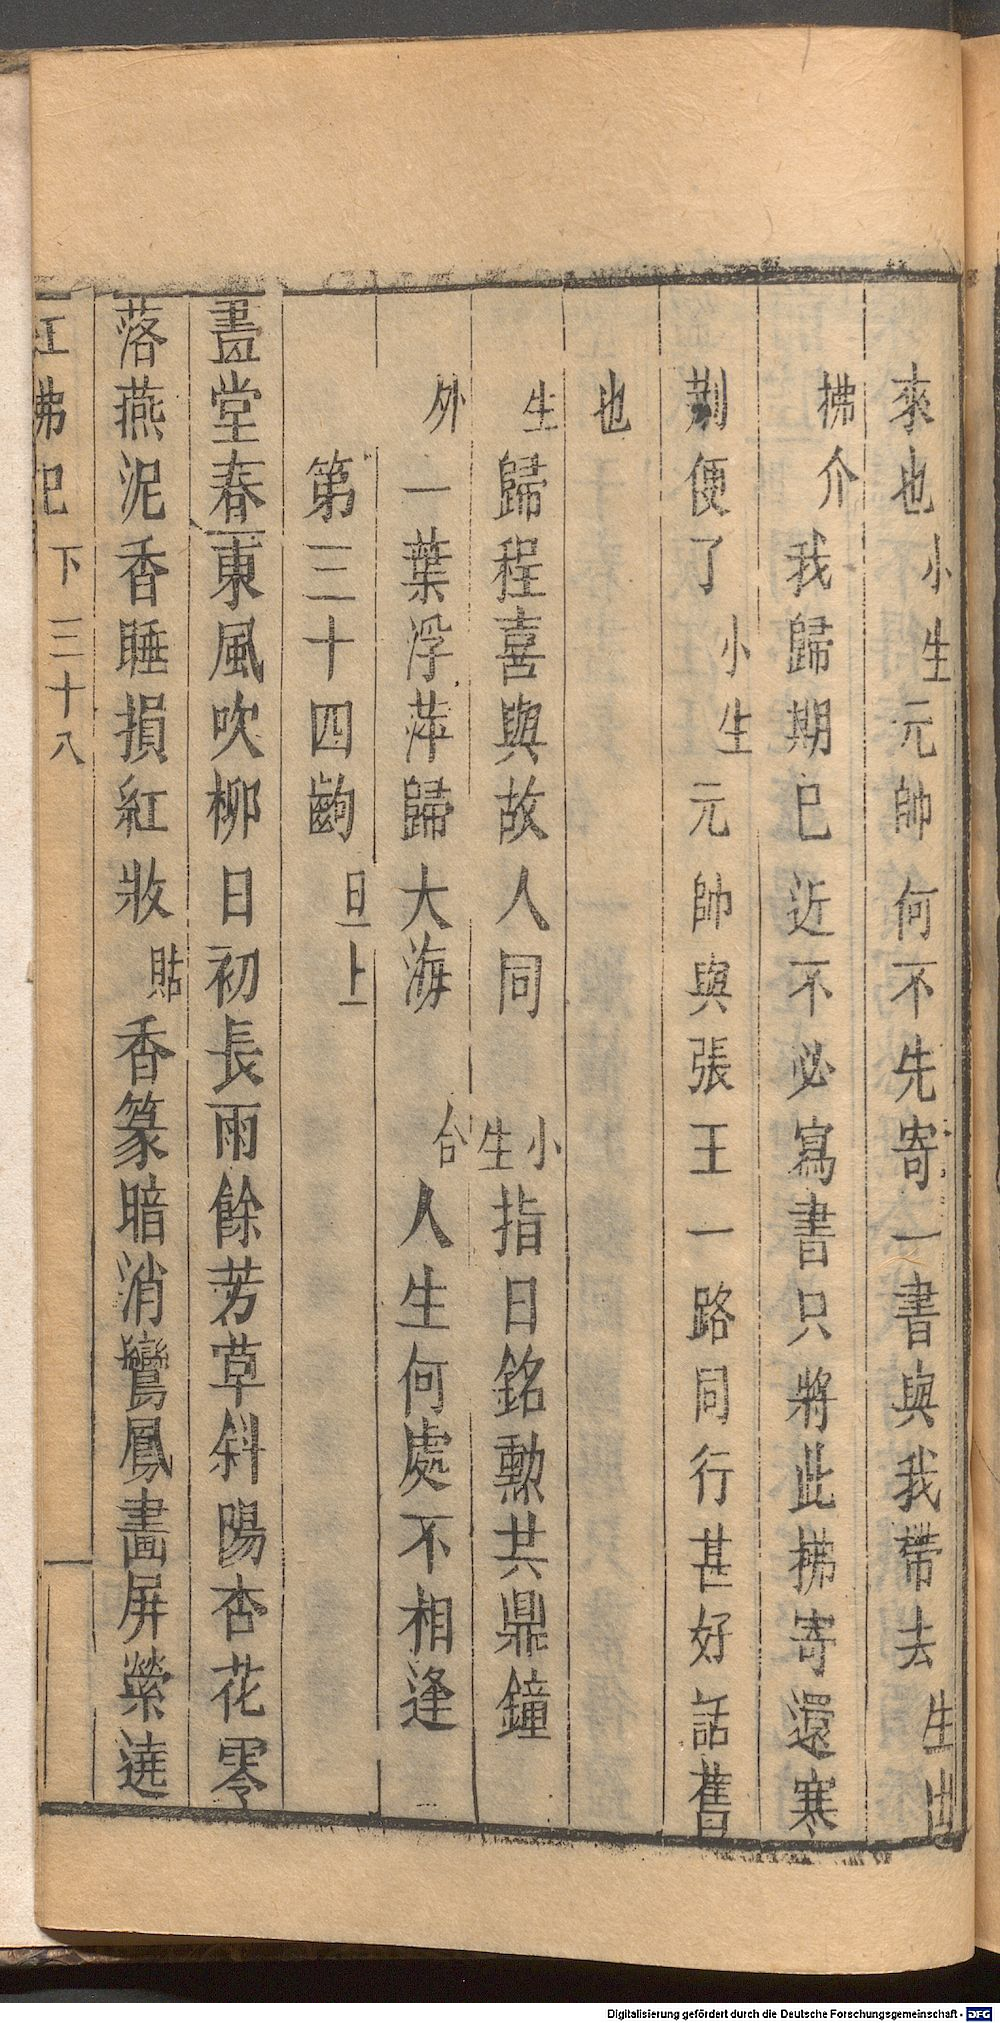 來也小生元帥何不先寄一書與我帶去生出
拂介我歸期已近不必寫書只將此拂寄還寒
荆便了小生元帥與張王一路同行甚好話舊
也
生歸程喜與故人同 小生指日銘勳共鼎鐘
外一葉浮萍歸大海 合人生何處不相逢
第三十四齣 旦上
畫堂春東風吹柳日初長雨餘芳草斜陽杏花零
落燕泥香睡損紅妝貼香篆暗消鸞鳳畫屏縈遶
紅拂記 下 三十八
Digitalisierung gefördert durch die Deutsche Forschungsgemeinschaft - DFG